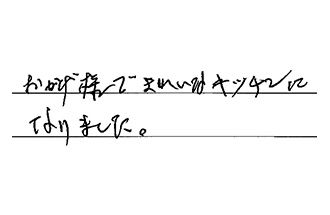 おかげ様できれいなキッチンに
なりました。